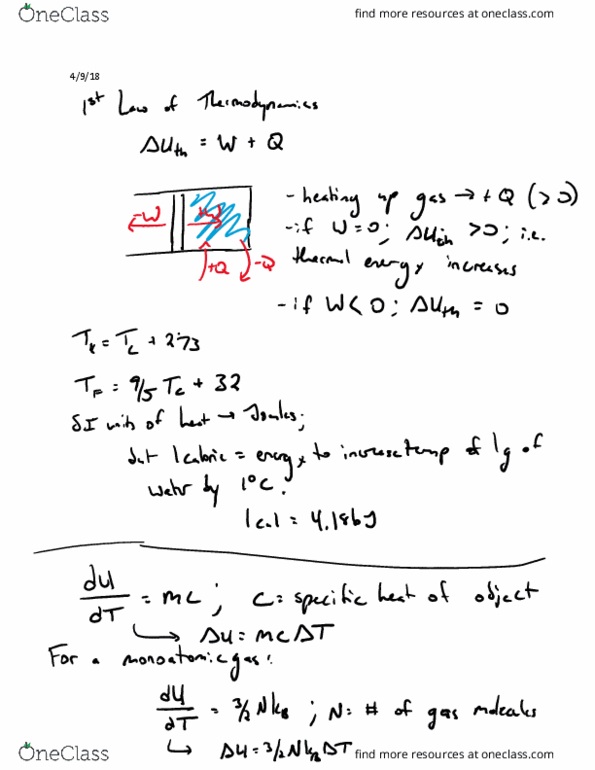 OneClass
find more resources at oneclass.com
4/9/18
1st Law of Thermodynamics
ΔUth = W + Q
- heating up gas → +Q (>0)
-W
W
- if W=0; ΔUth >0; i.e.
thermal energy increases
+Q
-Q
- if W<0; ΔUth = 0
Tk = Tc + 273
TF = 9/5 Tc + 32
SI units of heat → Joules;
but 1 calorie = energy to increase temp of 1g of
water by 1°C.
1 cal = 4.186 J
dU/dT = mc; C = specific heat of object
↳ ΔU = mcΔT
For a monoatomic gas:
dU/dT = 3/2 Nkb; N: # of gas molecules
↳ ΔU = 3/2 NkbΔT
OneClass
find more resources at oneclass.com